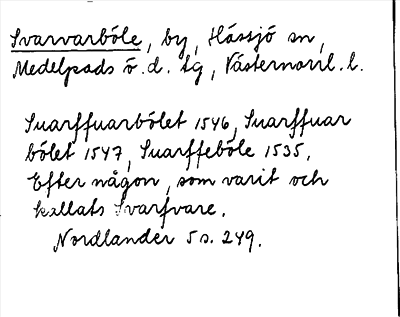 Svarvarböle, by, Hässjö sn,
Medelpads ö. d. tg, Västernorrl. l.
Suarffuarbölet 1546, Suarffuar
bölet 1547, Suarffeböle 1535.
Efter någon, som varit och
kallats Svarfvare.
Nordlander 5 s. 249.